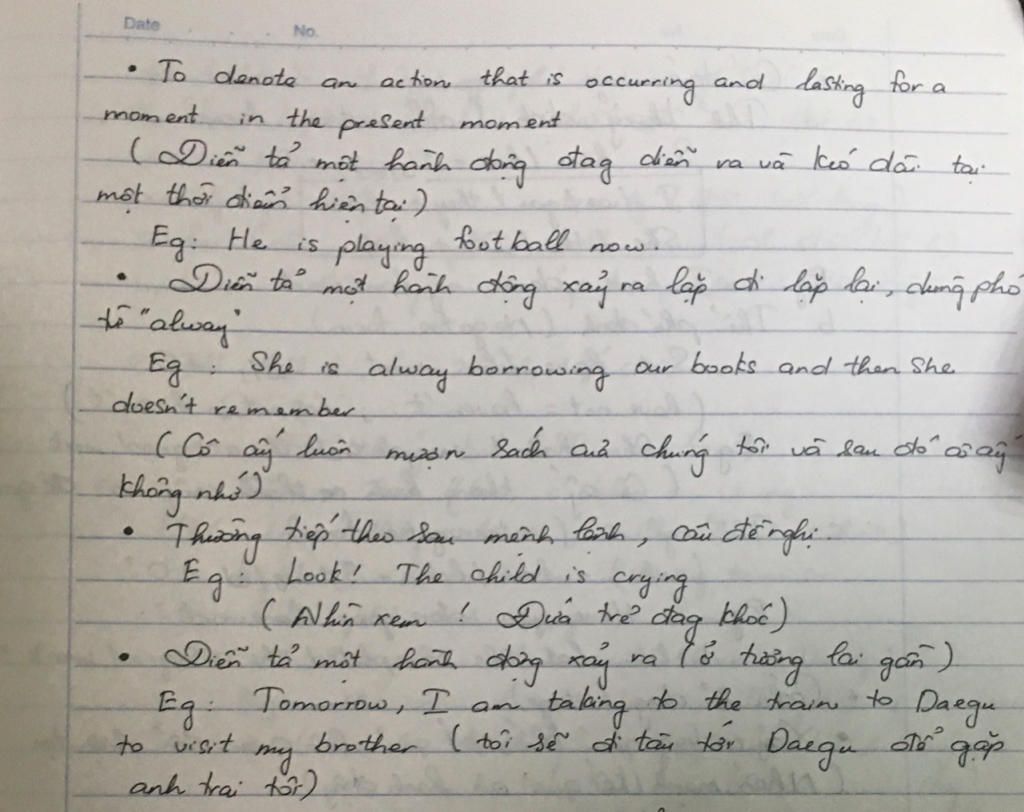 Date No.
• To denote an action that is occurring and lasting for a
moment in the present moment
(Diễn tả một hành động đag diễn ra và kéo dài tại
một thời điểm hiện tại)
Eg: He is playing football now.
• Diễn tả một hành động xảy ra lặp đi lặp lại, dùng phó
từ "alway"
Eg: She is alway borrowing our books and then she
doesn't remember
(Cô ấy luôn mượn sách của chúng tôi và sau đó cô ấy
không nhớ)
• Thường tiếp theo sau mệnh lệnh, câu đề nghị.
Eg: Look! The child is crying
(Nhìn xem! Đứa trẻ đag khóc)
• Diễn tả một hành động xảy ra (ở tương lai gần)
Eg: Tomorrow, I am taking to the train to Daegu
to visit my brother (tôi sẽ đi tàu tới Daegu để gặp
anh trai tôi)